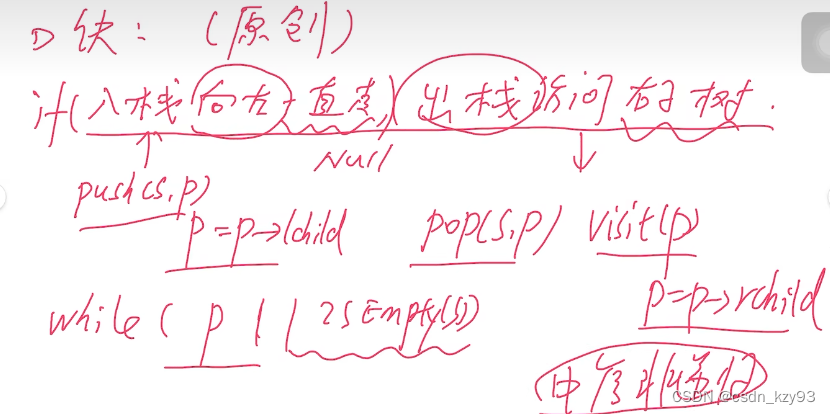 口诀：（原创）
if(入栈向左一直走)出栈访问右子树.
Null
push(s,p)
p=p→lchild pop(s,p) visit(p)
p=p→rchild
while( p || IsEmpty(s))
中序非递归
CSDN @csdn_kzy93